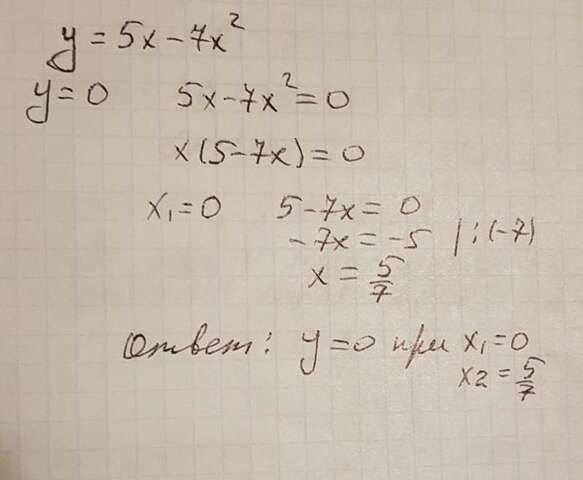 y = 5x - 7x²
y = 0 5x - 7x² = 0
x(5 - 7x) = 0
x₁ = 0 5 - 7x = 0
-7x = -5 | : (-7)
x = 5/7
Ответ: y = 0 при x₁ = 0
x₂ = 5/7